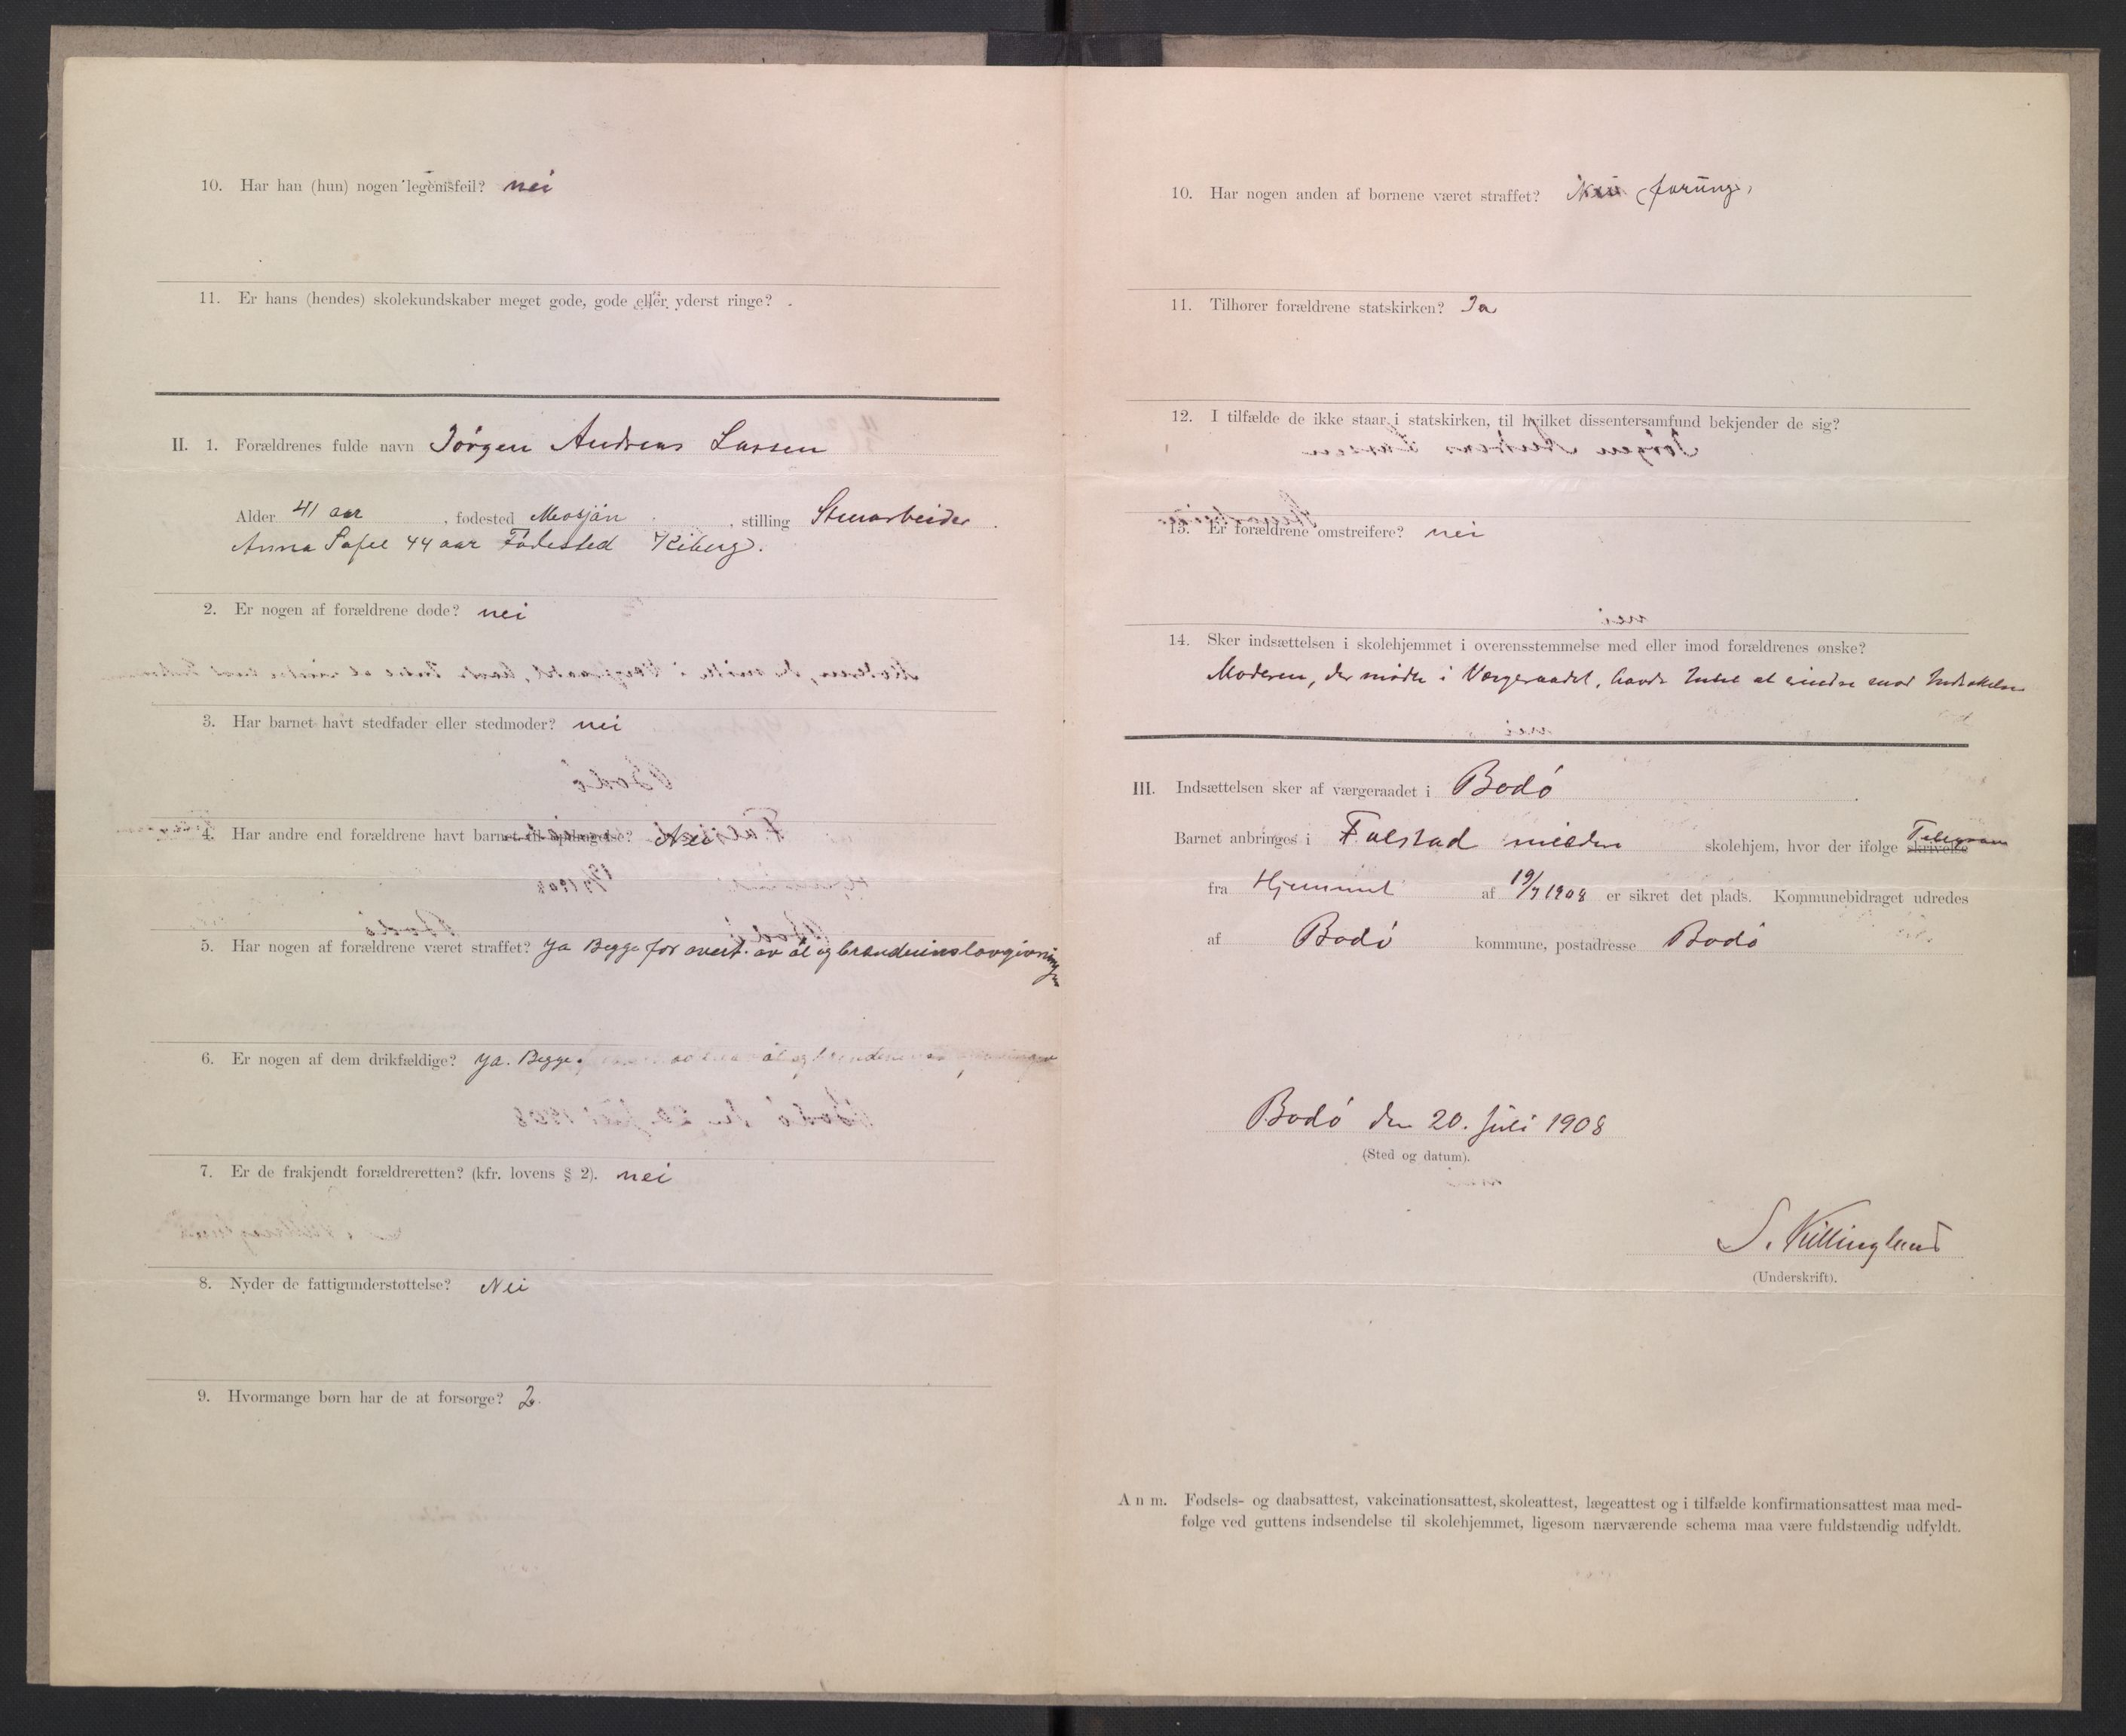 10. Har han (hun) nogen legemsfeil? nei
11. Er hans (hendes) skolekundskaber meget gode, gode eller yderst ringe?
II. 1. Forældrenes fulde navn Jørgen Andreas Larsen
Alder 41 aar, fødested Mosjøn, stilling Stenarbeider.
Anna Sofie 44 aar Fødested Kiberg.
2. Er nogen af forældrene døde? nei
3. Har barnet havt stedfader eller stedmoder? nei
4. Har andre end forældrene havt barnet til opfostringelse? Nei
5. Har nogen af forældrene været straffet? Ja Begge for overt. av øl og brændevinslovgivningen
6. Er nogen af dem drikfældige? Ja. Begge.
7. Er de frakjendt forældreretten? (kfr. lovens § 2). nei
8. Nyder de fattigunderstøttelse? Nei
9. Hvormange børn har de at forsørge? 2.
10. Har nogen anden af børnene været straffet? Nei (forung)
11. Tilhører forældrene statskirken? Ja
12. I tilfælde de ikke staar i statskirken, til hvilket dissentersamfund bekjender de sig?
13. Er forældrene omstreifere? nei
14. Sker indsættelsen i skolehjemmet i overensstemmelse med eller imod forældrenes ønske?
Moderen, der mødte i Værgeraadet, havde Intet at erindre mod Indsættelsen
III. Indsættelsen sker af værgeraadet i Bodø
Barnet anbringes i Falstad skolehjem, hvor der ifølge skrivelse Telegram
fra Hjemmet af 19/7 1908 er sikret det plads. Kommunebidraget udredes
af Bodø kommune, postadresse Bodø
Bodø den 20. juli 1908
(Sted og datum).
S. Killinglund
(Underskrift).
Anm. Fødsels- og daabsattest, vakcinationsattest, skoleattest, lægeattest og i tilfælde konfirmationsattest maa med-
følge ved guttens indsendelse til skolehjemmet, ligesom nærværende schema maa være fuldstændig udfyldt.